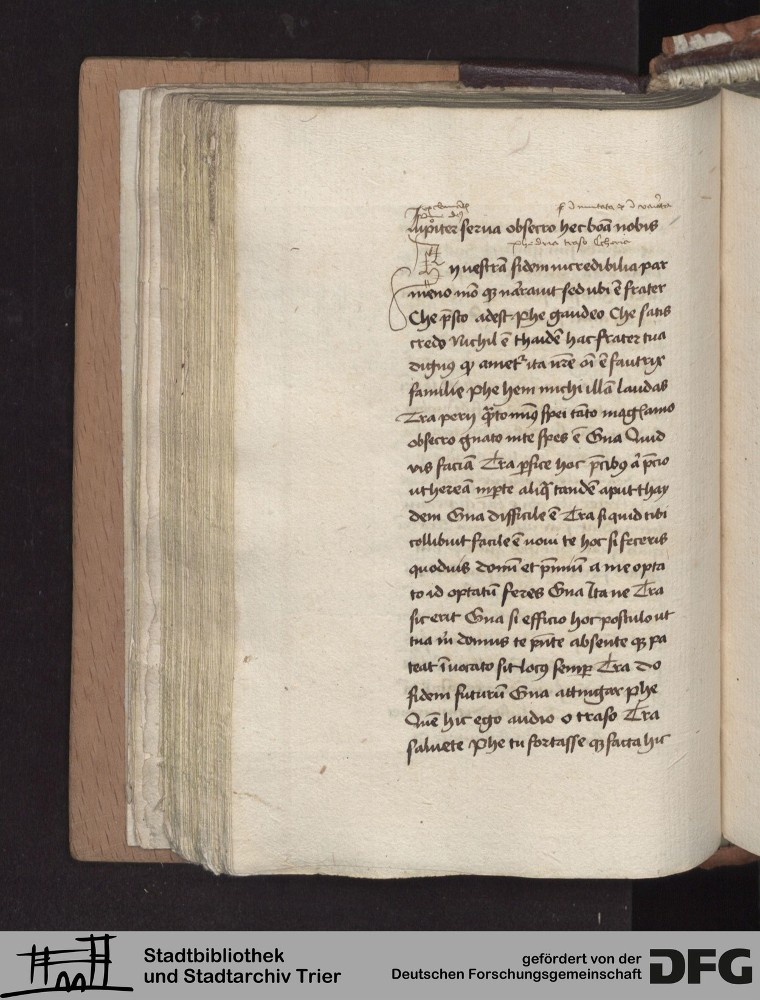 Iupiter serua obsecro hec boā nobis
phedria traso Cheria
nuestrā fidem incredibilia par
meno mō q̄ narrauit sed ubi ē frater
Che p̄sto adest phe gaudeo Che satis
credo Nichil ē thaidē hac frater tua
dignꝰ q̄ ametʳ ita nr̄e oī ē fautrix
familie phe hem michi illā laudas
Tra perij q̄to minꝰ spei tāto magꝭ amo
obsecro gnato in te spes ē Gna Quid
vis faciā Tra ꝑfice hoc p̄cibꝰ a p̄cio
ut hereā in ꝑte aliq̄ tandē aput thay
dem Gna difficile ē Tra si quid tibi
collibuit facile ē noui te hoc si feceris
quoduis donū et p̄miū a me opta
to id optatū feres Gna Ita ne Tra
sic erit Gna si efficio hoc postulo ut
tua m̄ domus te p̄nte absente q̄ pa
teat īuocato sit locꝰ semꝑ Tra do
fidem futurū Gna attingar phe
Quē hic ego audio o traso Tra
saluete phe tu fortasse q̄ facta hic
Stadtbibliothek
und Stadtarchiv Trier
gefördert von der
Deutschen Forschungsgemeinschaft
DFG